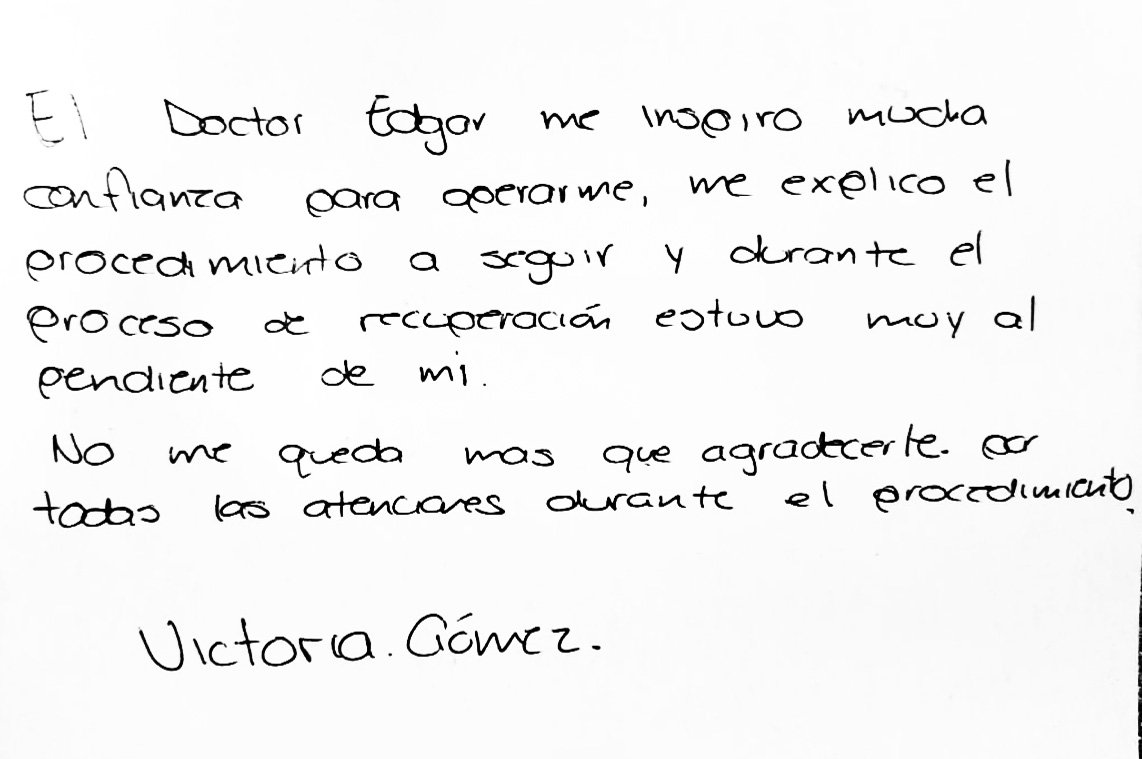 El Doctor Edgar me inspiro mucha
confianza para operarme, me explico el
procedimiento a seguir y durante el
proceso de recuperación estuvo muy al
pendiente de mi.
No me queda mas que agradecerle. por
todas las atenciones durante el procedimiento.
Victoria. Gómez.